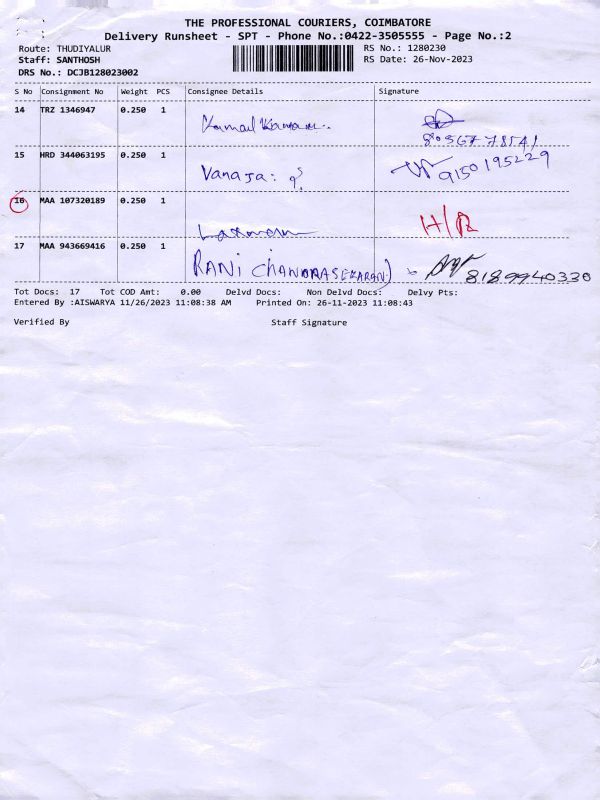 THE PROFESSIONAL COURIERS, COIMBATORE
Delivery Runsheet - SPT - Phone No.:0422-3505555 - Page No.:2
Route: THUDIYALUR RS No.: 1280230
Staff: SANTHOSH RS Date: 26-Nov-2023
DRS No.: DCJB128023002
S No Consignment No Weight PCS Consignee Details Signature
14 TRZ 1346947 0.250 1
8056778541
15 HRD 344063195 0.250 1 Vanaja: 9150195229
16 MAA 107320189 0.250 1 H/R
17 MAA 943669416 0.250 1 RANI CHANDRASEKARAN) 8189940330
Tot Docs: 17 Tot COD Amt: 0.00 Delvd Docs: Non Delvd Docs: Delvy Pts:
Entered By :AISWARYA 11/26/2023 11:08:38 AM Printed On: 26-11-2023 11:08:43
Verified By Staff Signature